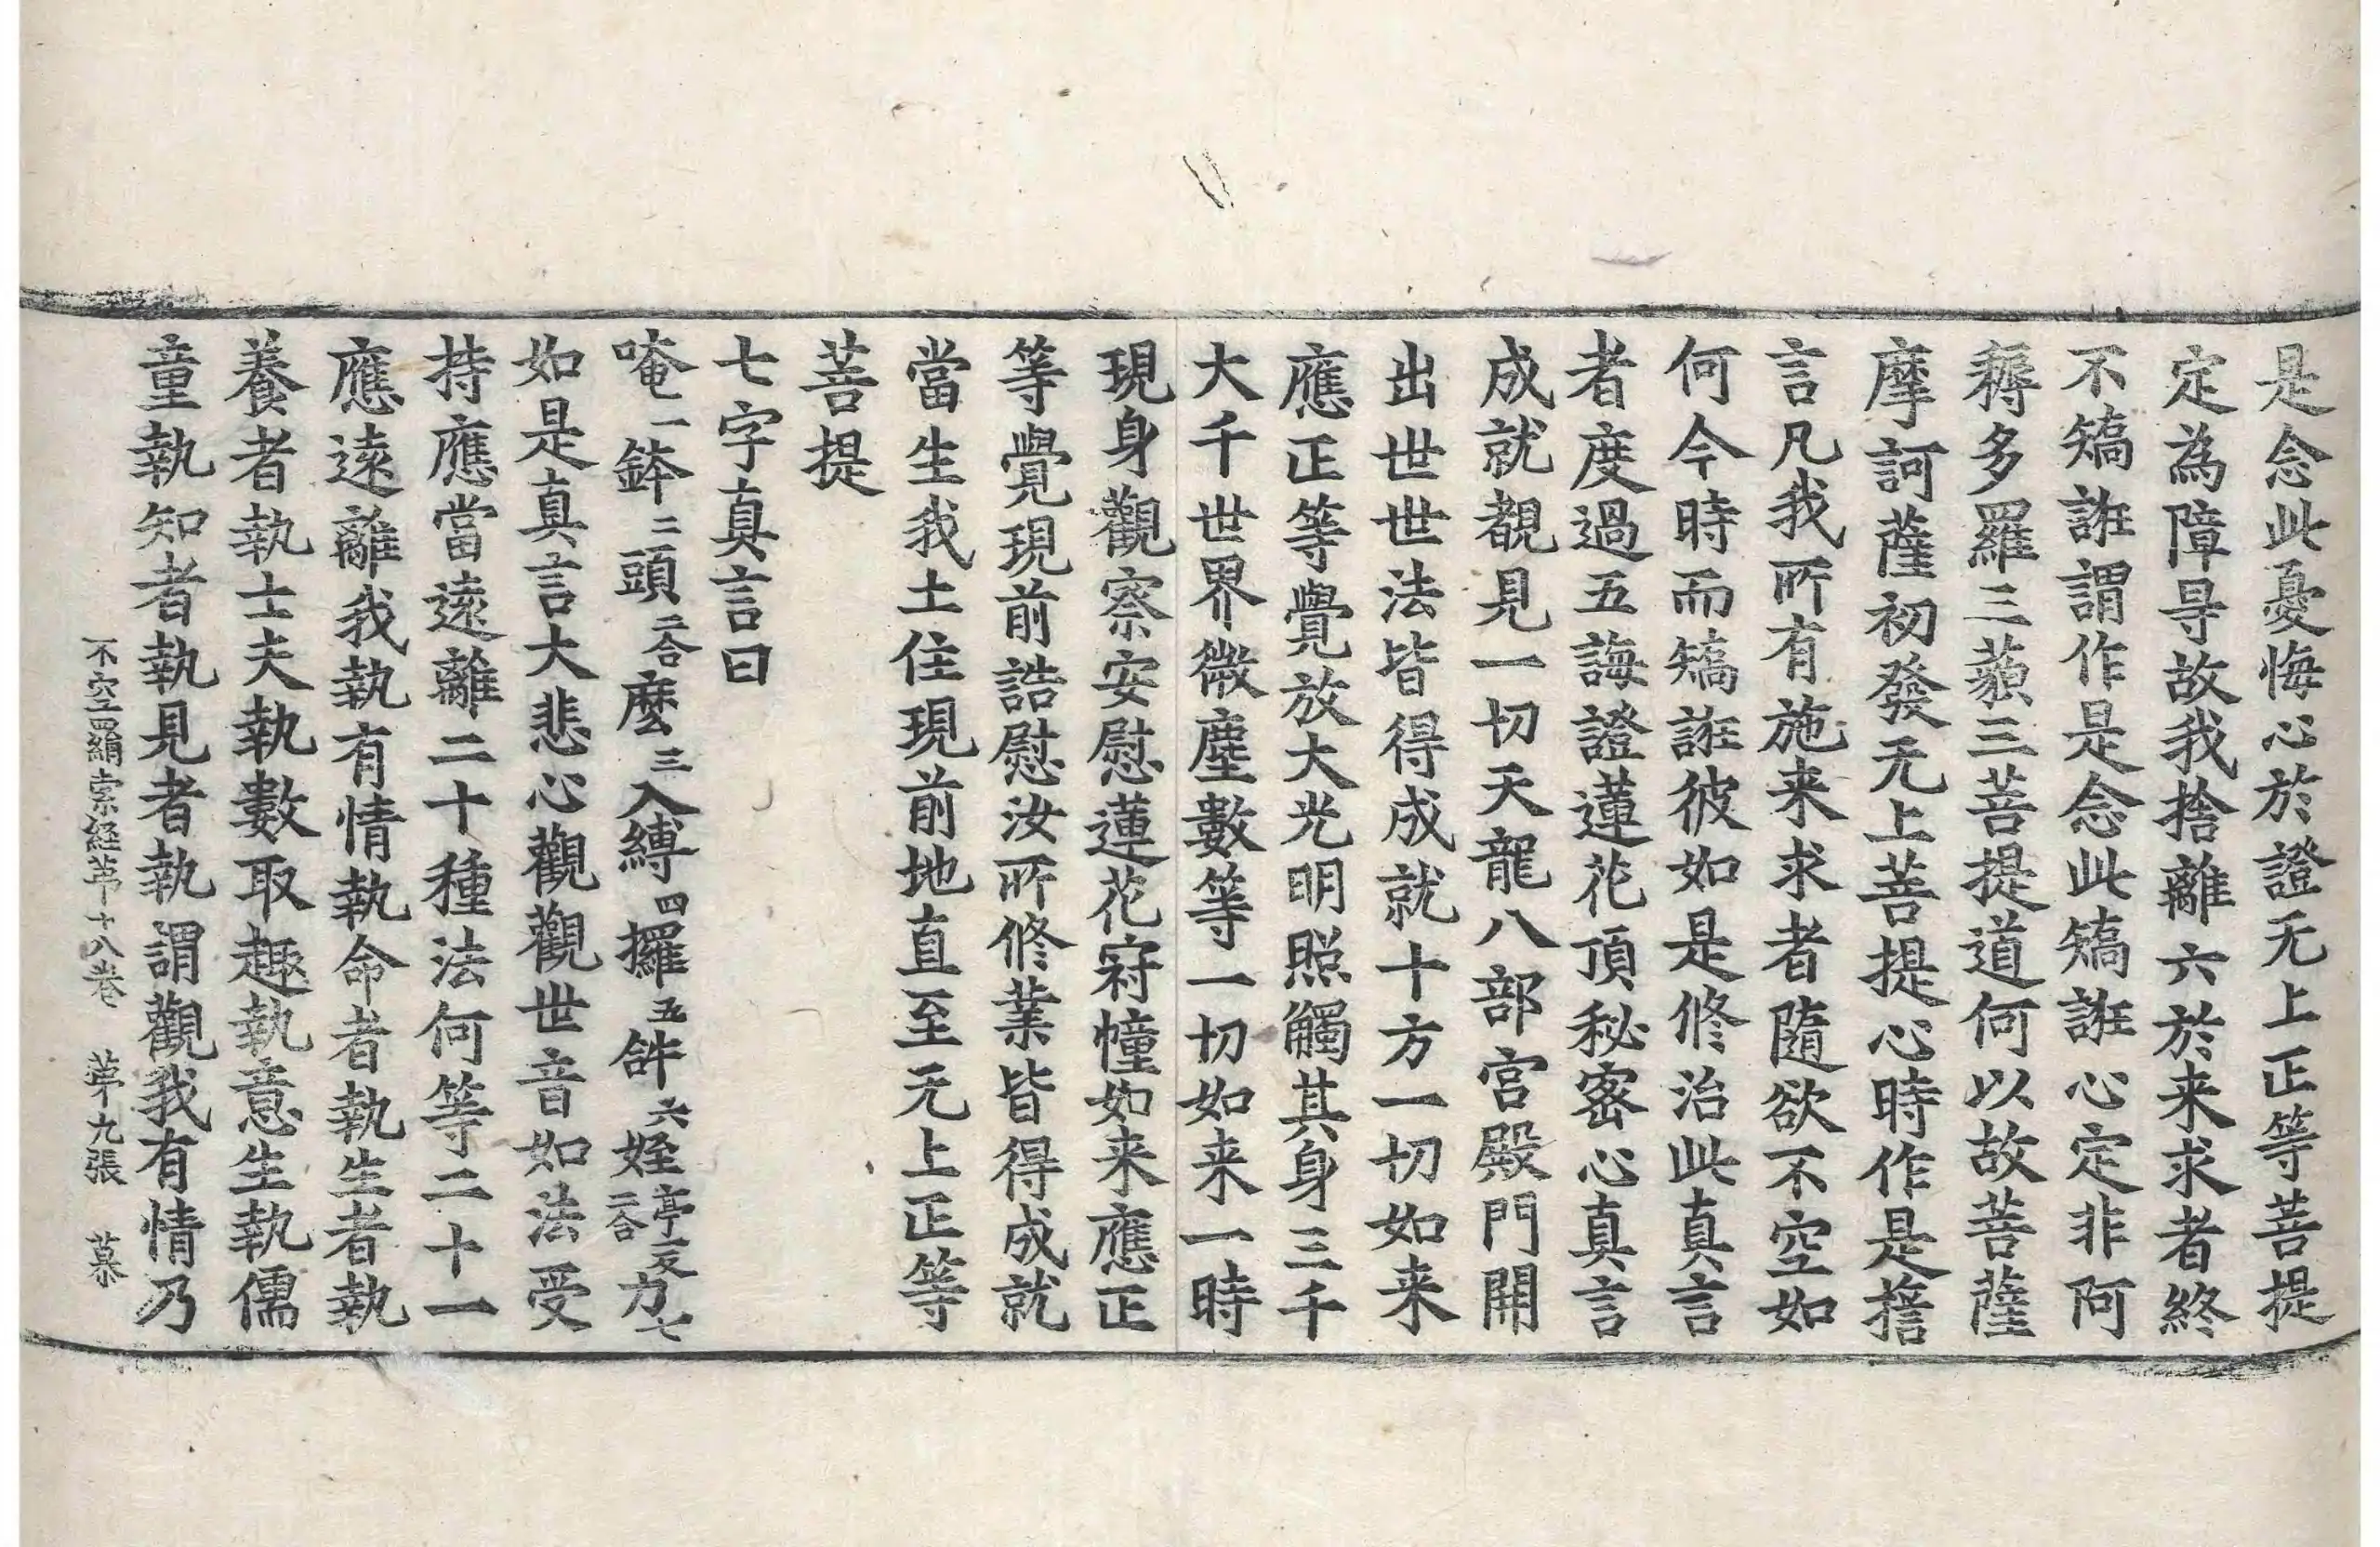 是念此憂悔心於證无上正等菩提
定為障㝵故我捨離六於来求者終
不矯誑謂作是念此矯誑心定非阿
耨多羅三藐三菩提道何以故菩薩
摩訶薩初發无上菩提心時作是誓
言凡我所有施来求者隨欲不空如
何今時而矯誑彼如是修治此真言
者度過五誨證蓮花頂秘密心真言
成就覩見一切天龍八部宫殿門開
出世世法皆得成就十方一切如来
應正等覺放大光明照觸其身三千
大千世界微塵數等一切如来一時
現身觀察安慰蓮花𡨧幢如来應正
等覺現前誥慰汝所修業皆得成就
當生我土住現前地直至无上正等
菩提
七字真言曰
唵一鉢二頭二合麽三入縛四攞五𤙖六姪亭夜反二合力七
如是真言大悲心觀觀世音如法受
持應當遠離二十種法何等二十一
應遠離我執有情執命者執生者執
養者執士夫執數取趣執意生執儒
童執知者執見者執謂觀我有情乃
不空羂索経苐十八卷 苐九張 慕